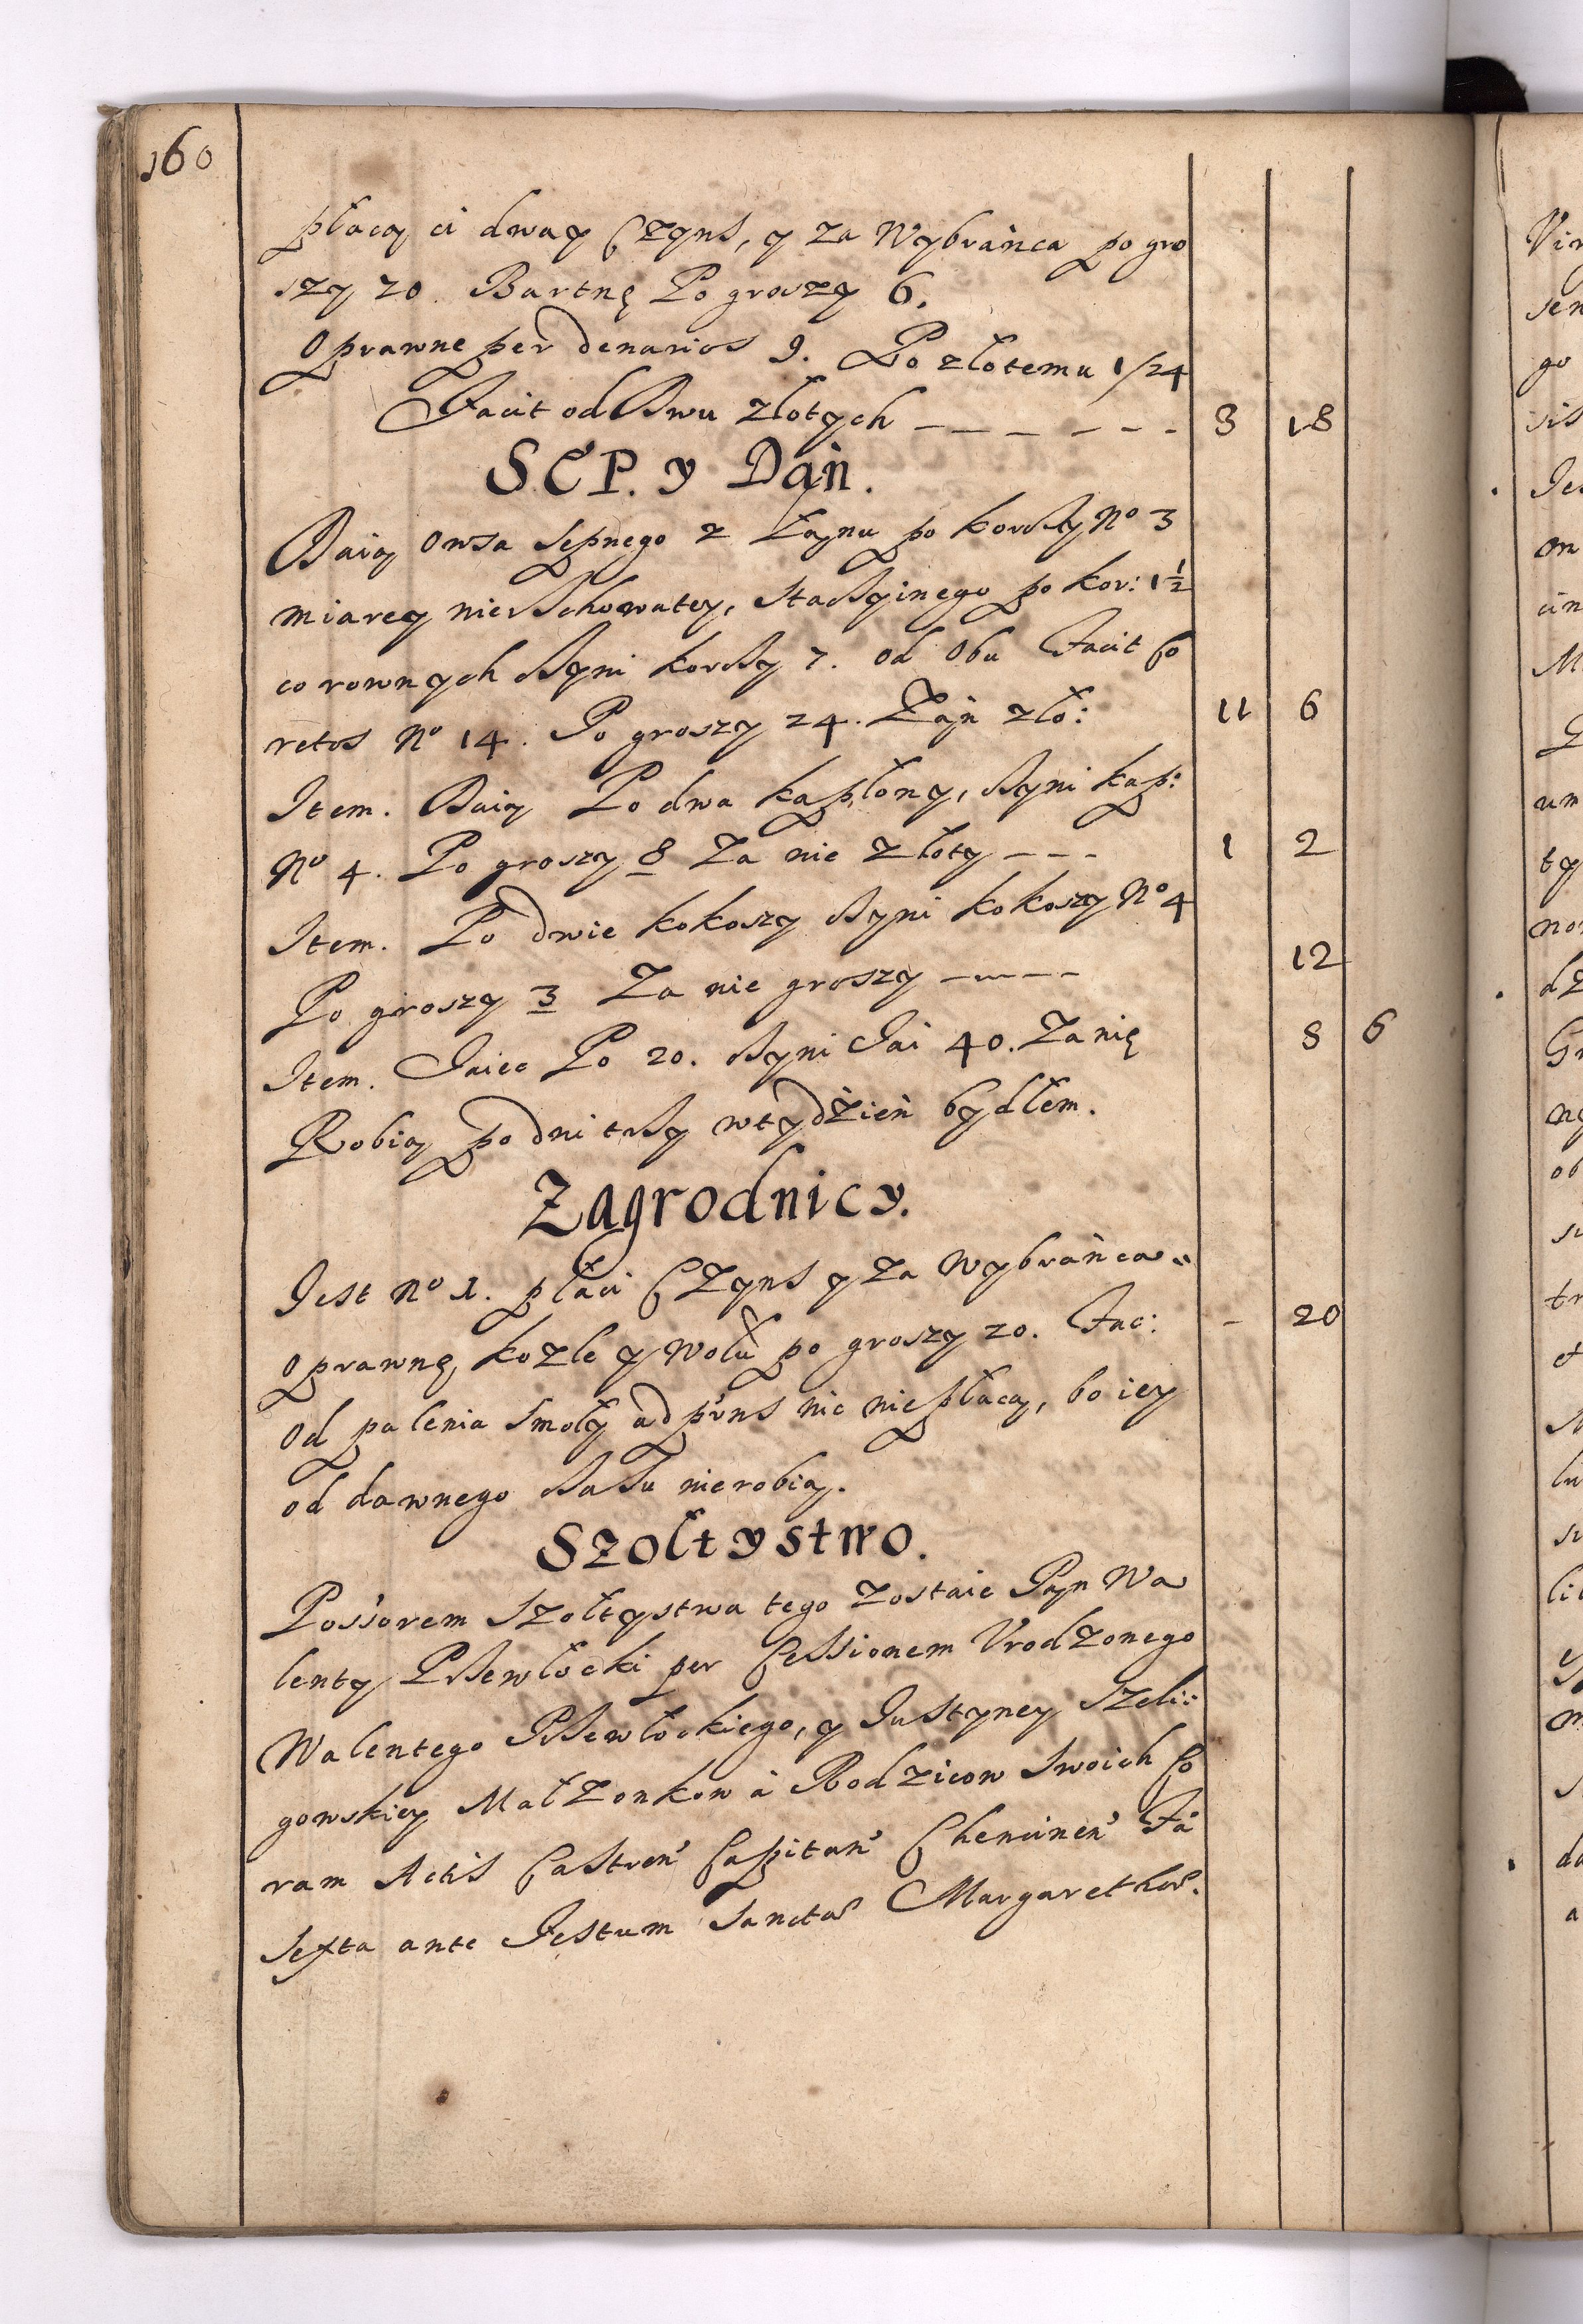 160
płacą ci dway Czyns, y za Wybrańca po gro
szy 20. Bartnę Po groszy 6.
Oprawne per denarios 9. Po złotemu 1/24
Facit od Dwu złotych - - - - - - - 3 18
SEP. y Dań.
Daią Owsa sepnego z Łanu po korcy No 3
miarey nierschowatey, stacyinego po kor: 1 1/2
co rownych czyni korcy 7. od Obu Facit Co
retos No 14. Po groszy 24. Łań zło: 11 6
Item. Daią Po dwa kapłony, czyni kap:
No 4. Po groszy 8 Za nie złoty - - - 1 2
Item. Po dwie kokoszy czyni kokoszy No 4
Po groszy 3 Za nie groszy - - - - - 12
Item. Jaiec Po 20. czyni Jai 40. Zanię 8 6
Robią po dni trzy w tydźień bydłem.
Zagrodnicy.
Jest No 1. płaci Czyns y za Wybrańca
oprawnę, kozle y wołu po groszy 20. Fac: - 20
Od palenia smoły ad prńs nic niepłacą, bo iey
od dawnego czasu nierobią.
Szołtystwo.
Possorem Szołtystwa tego zostaie Pan Wa
lenty Przewłocki per Cessionem Vrodzonego
Walentego Przewłockiego, y Justyney Szeli:
gowskiey Małzonkow á Rodzicow swoich Co
ram Actis Castren' Capitan' Chencinen' Fa
sexta ante Festum Sanctae Margarethae.